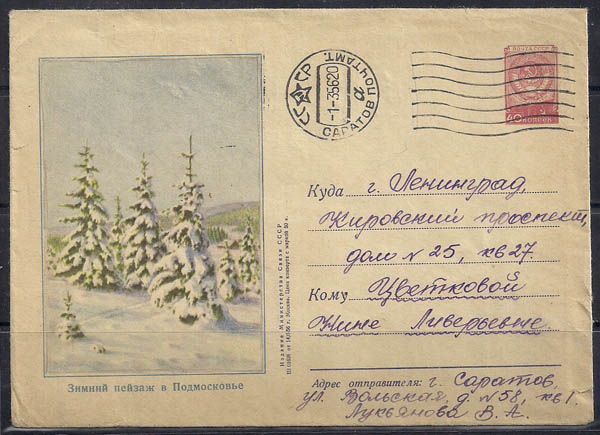 ПОЧТА СССР
40 КОПЕЕК
СССР
-1-35620
САРАТОВ ПОЧТАМТ.
а
Куда г. Ленинград,
Кировский проспект,
дом N 25, кв 27
Кому Цветковой
Нине Ливерьевне.
Адрес отправителя: г. Саратов,
ул. Вольская, д. N 58, кв 1.
Лукьянова В. А.
Издание Министерства Связи СССР
г. Москва. Цена конверта с маркой
Зимний пейзаж в Подмосковье